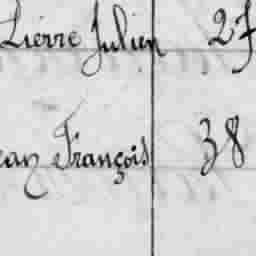 Pierre Julien 27
ean François 38